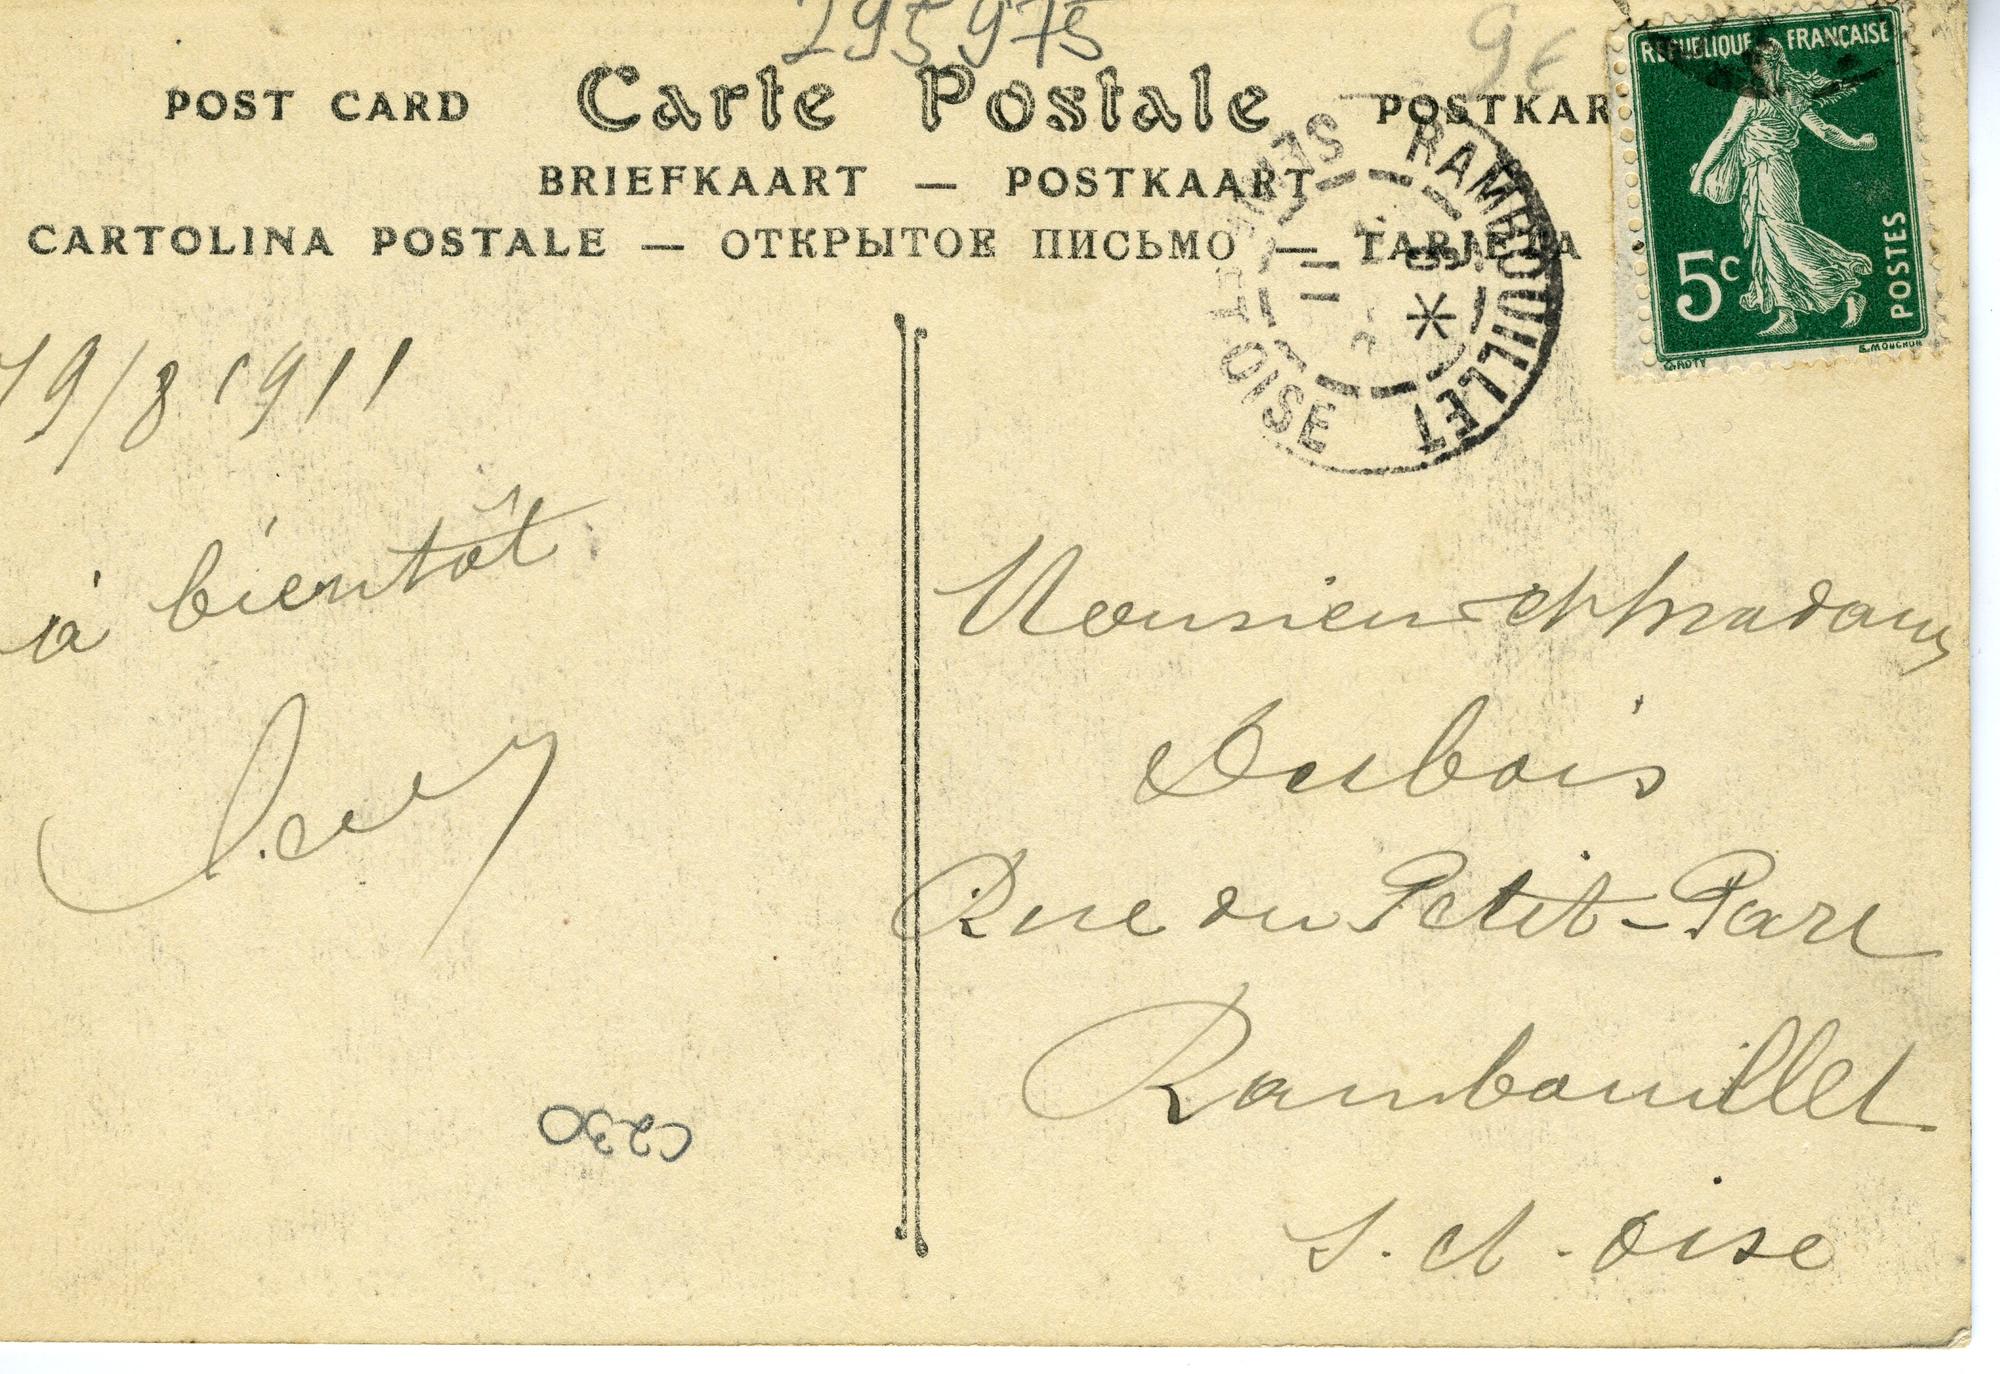 295975
9€
POST CARD Carte Postale POSTKAR
BRIEFKAART — POSTKAART
CARTOLINA POSTALE — ОТКРЫТОЕ ПИСЬМО — TARJETA
REPUBLIQUE FRANÇAISE
5c
POSTES
E. MOUCHON
RAMBOUILLET
SEINE-ET-OISE
11
19/8 1911
à bientôt
Monsieur et Madame
Dubois
Rue du Petit-Parc
Rambouillet
S. et. Oise
C230